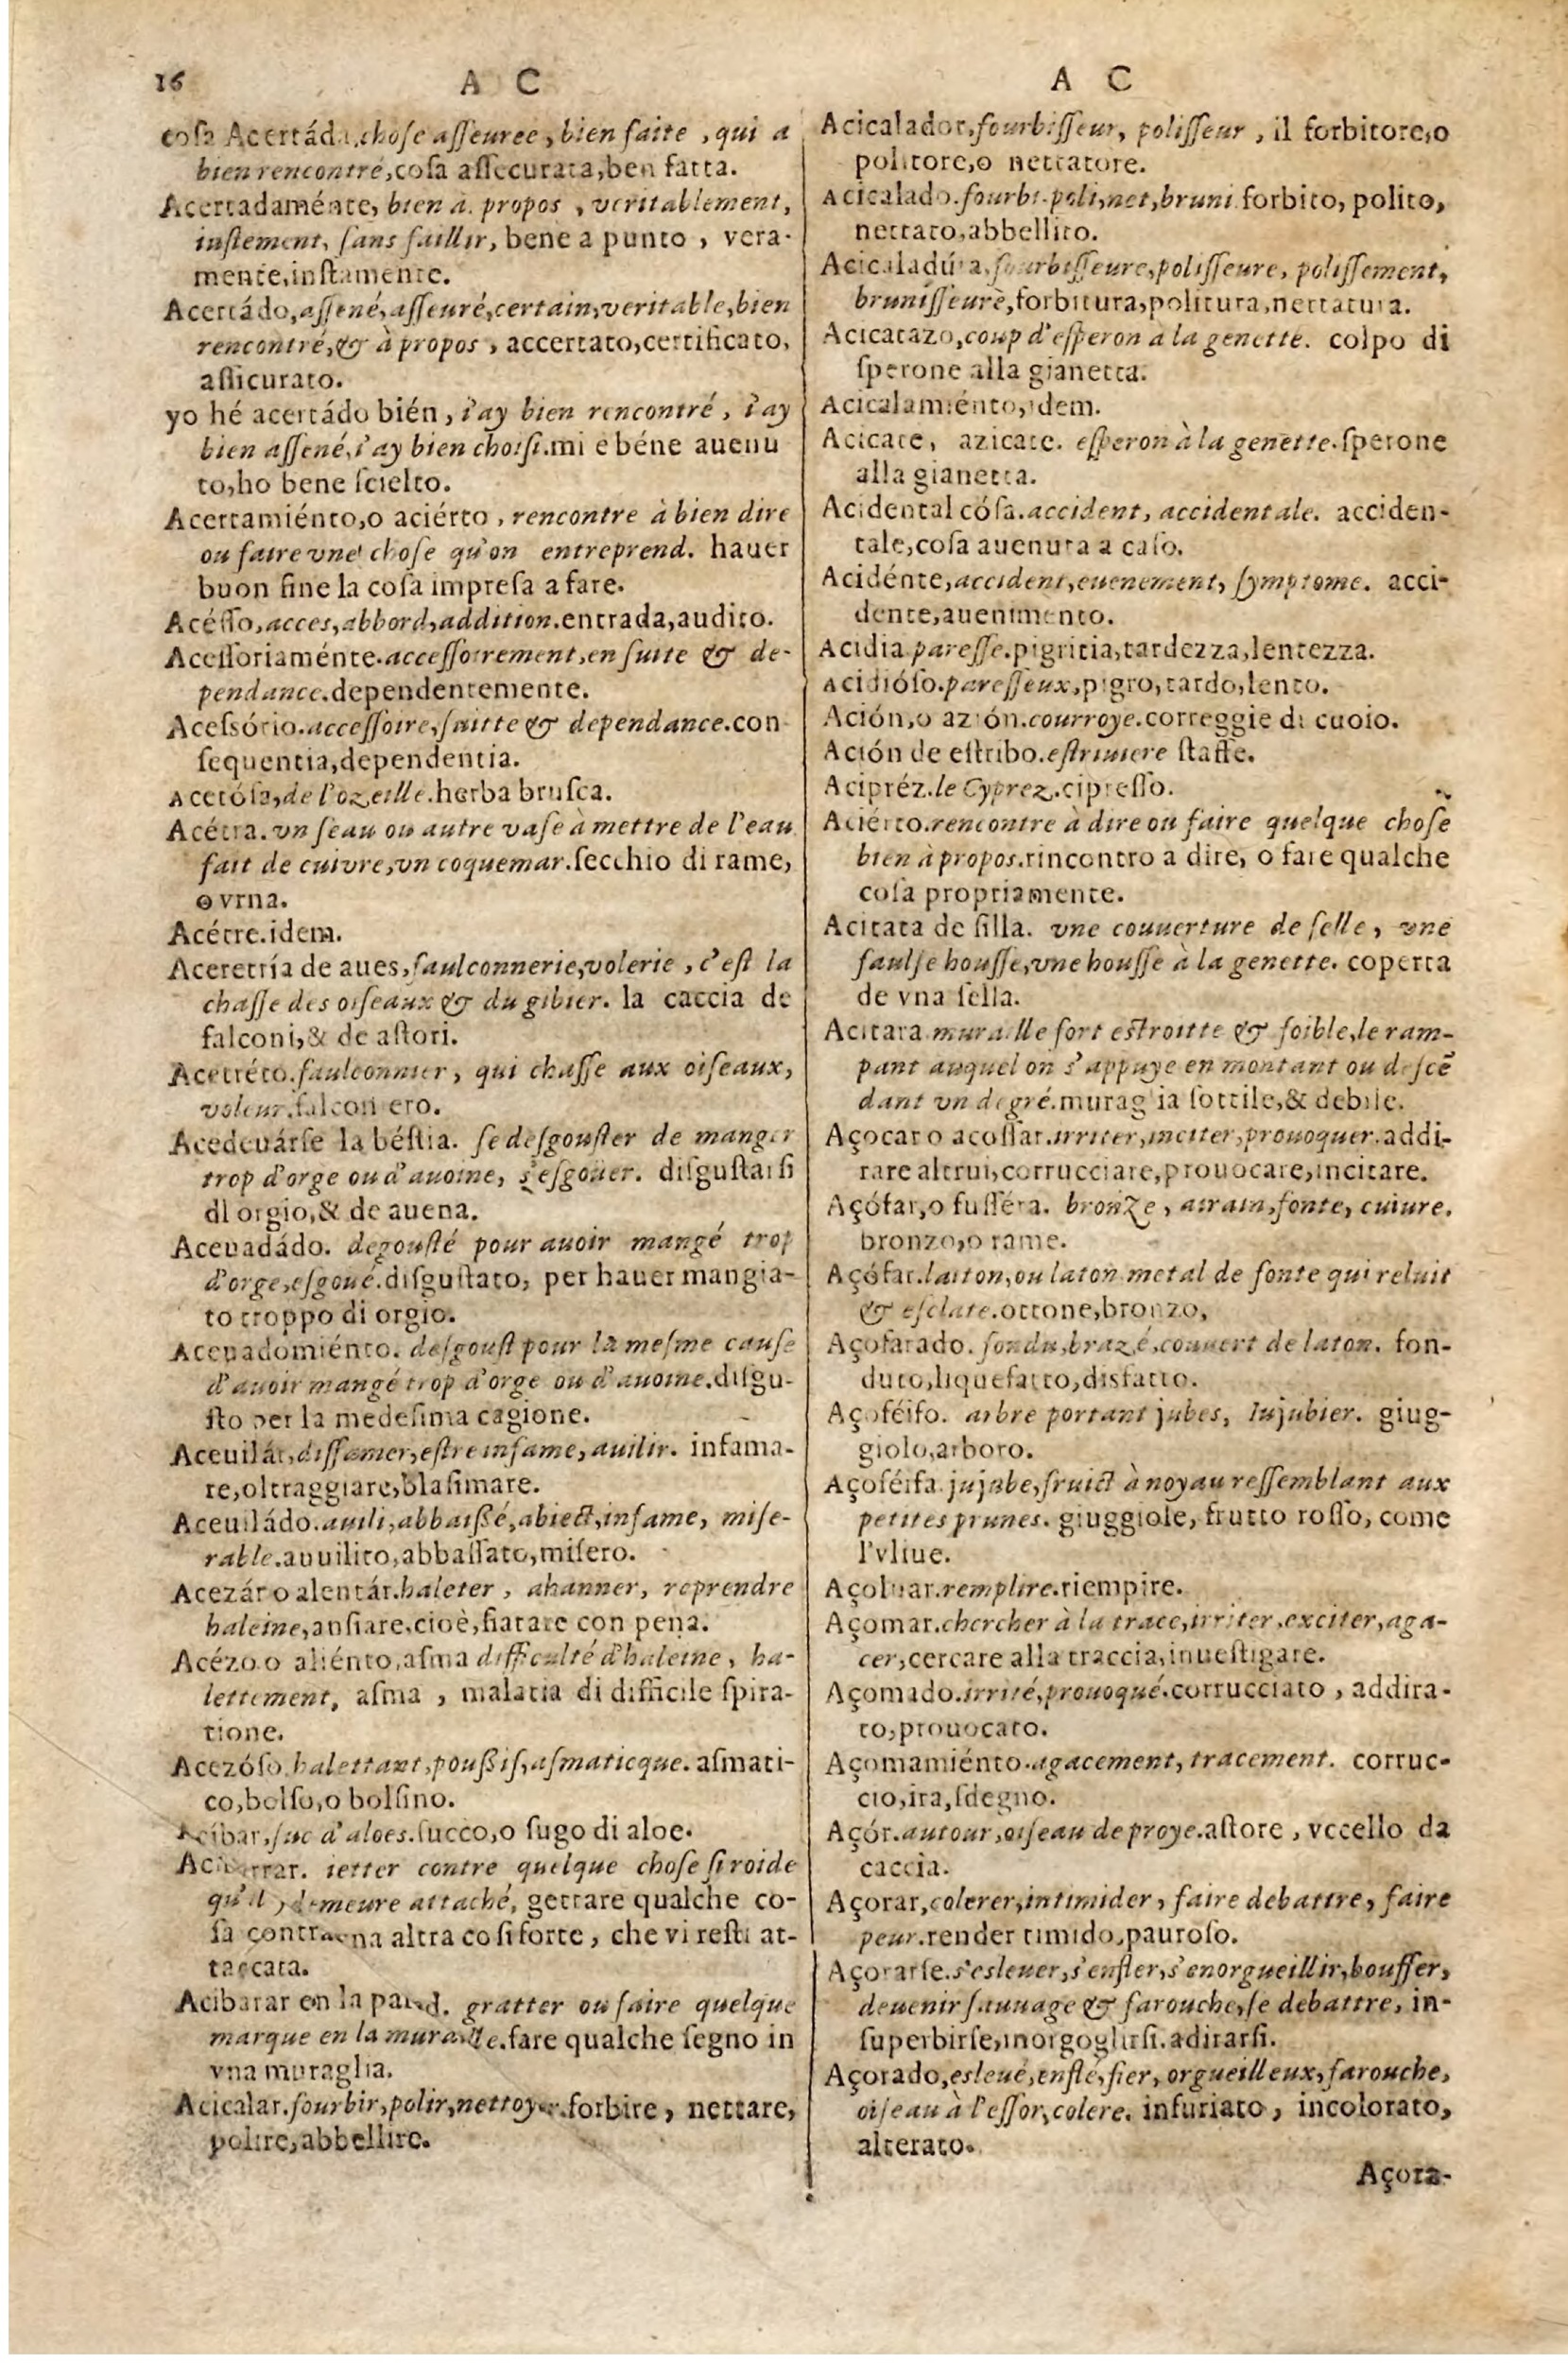 16
A C
cosa Acertáda.chose asseuree, bien faite, qui a
bien rencontré,cosa assecurata,ben fatta.
Acertadaménte, bien à propos, veritablement,
iustement, sans faillir, bene a punto, vera-
mente,iustamente.
Acertádo,assené,asseuré,certain,veritable,bien
rencontré,& à propos, accertato,certificato,
assicurato.
yo hé acertádo bién, i'ay bien rencontré, i'ay
bien assené,i'ay bien choisi.mi e béne auenu
to,ho bene scielto.
Acertamiénto,o aciérto, rencontre à bien dire
ou faire vne chose qu'on entreprend. hauer
buon fine la cosa impresa a fare.
Acésso,acces,abbord,addition.entrada,audito.
Acessoriaménte.accessoirement,en suite & de-
pendance.dependentemente.
Acessório.accessoire,suitte & dependance.con
sequentia,dependentia.
Acetósa,de l'ozeille.herba brusca.
Acétra.vn seau ou autre vase à mettre de l'eau
fait de cuivre,vn coquemar.secchio di rame,
o vrna.
Acétre.idem.
Aceretría de aues,faulconnerie,volerie, c'est la
chasse des oiseaux & du gibier. la caccia de
falconi,& de astori.
Acetréto.faulconnier, qui chasse aux oiseaux,
voleur.falconiero.
Acedeuárse la béstia. se desgouster de manger
trop d'orge ou d'auoine, s'esgoüer. disgustarsi
di orgio,& de auena.
Aceuadádo. degousté pour auoir mangé trop
d'orge,esgoué.disgustato, per hauer mangia-
to troppo di orgio.
Aceuadomiénto. desgoust pour la mesme cause
d'auoir mangé trop d'orge ou d'auoine.disgu-
sto per la medesima cagione.
Aceuilár,diffamer,estre infame,auilir. infama-
re,oltraggiare,blasimare.
Aceuiládo.auili,abbaißé,abiect,infame, mise-
rable.auuilito,abbassato,misero.
Acezár o alentár.haleter, ahanner, reprendre
haleine,ansiare,cioè,fiatare con pena.
Acézo o aliénto,asma difficulté d'haleine, ha-
lettement, asma, malatia di difficile spira-
tione.
Acezóso halettant,poußif,asmaticque. asmati-
co,bolso,o bolsino.
Acíbar,suc d'aloes.succo,o sugo di aloe.
ietter contre quelque chose si roide
qu'il y demeure attaché, gettare qualche co-
sa contra vna altra cosi forte, che vi resti at-
taccata.
Acibarar en la pared. gratter ou faire quelque
marque en la muraille.fare qualche segno in
vna muraglia.
Acicalar.fourbir,polir,nettoyer.forbire, nettare,
polire,abbellire.
A C
Acicalador,fourbisseur, polisseur, il forbitore,o
politore,o nettatore.
Acicalado.fourbi.poli,net,bruni.forbito, polito,
nettato,abbellito.
Acicaladúra,fourbisseure,polisseure, polissement,
brunisseure,forbitura,politura,nettatura.
Acicatazo,coup d'esperon à la genette. colpo di
sperone alla gianetta.
Acicalamiénto,idem.
Acicate, azicate. esperon à la genette.sperone
alla gianetta.
Acidental cósa.accident, accidentale. acciden-
tale,cosa auenuta a caso.
Acidénte,accident,euenement, symptome. acci-
dente,auenimento.
Acidia paresse.pigritia,tardezza,lentezza.
Acidióso.paresseux,pigro,tardo,lento.
Ación,o azión.courroye.correggie di cuoio.
Ación de estribo.estriuiere staffe.
Acipréz.le Cyprez.cipresso.
Aciérto.rencontre à dire ou faire quelque chose
bien à propos.rincontro a dire, o fare qualche
cosa propriamente.
Acitata de silla. vne couuerture de selle, vne
faulse housse,vne housse à la genette. coperta
de vna sella.
Acitara muraille fort estroitte & foible,le ram-
pant auquel on s'appuye en montant ou descē
dant vn degré.muraglia sottile,& debile.
Açocar o acossar.irriter,inciter,prouoquer.addi-
rare altrui,corrucciare,prouocare,incitare.
Açófar,o fusséra. bronze, airain,fonte, cuiure.
bronzo,o rame.
Açófar.laiton,ou laton metal de fonte qui reluit
& esclate.ottone,bronzo,
Açofarado. fondu,brazé,couuert de laton. fon-
duto,liquefatto,disfatto.
Açoféifo. arbre portant jubes, Iujubier. giug-
giolo,arboro.
Açoféifa jujube,fruict à noyau ressemblant aux
petites prunes. giuggiole, frutto rosso, come
l'vliue.
Açoluar.remplire.riempire.
Açomar.chercher à la trace,irriter,exciter,aga-
cer,cercare alla traccia,inuestigare.
Açomado.irrité,prouoqué.corrucciato, addira-
to,prouocato.
Açomamiénto.agacement, tracement. corruc-
cio,ira,sdegno.
Açór.autour,oiseau de proye.astore, vccello da
caccia.
Açorar,colerer,intimider, faire debattre, faire
peur.render timido,pauroso.
Açorarse.s'esleuer,s'enfler,s'enorgueillir,bouffer,
deuenir sauuage & farouche,se debattre, in-
superbirse,inorgoglirsi.adirarsi.
Açorado,esleué,enflé,fier, orgueilleux,farouche,
oiseau à l'essor,colere. infuriato, incolorato,
alterato.
Açora-